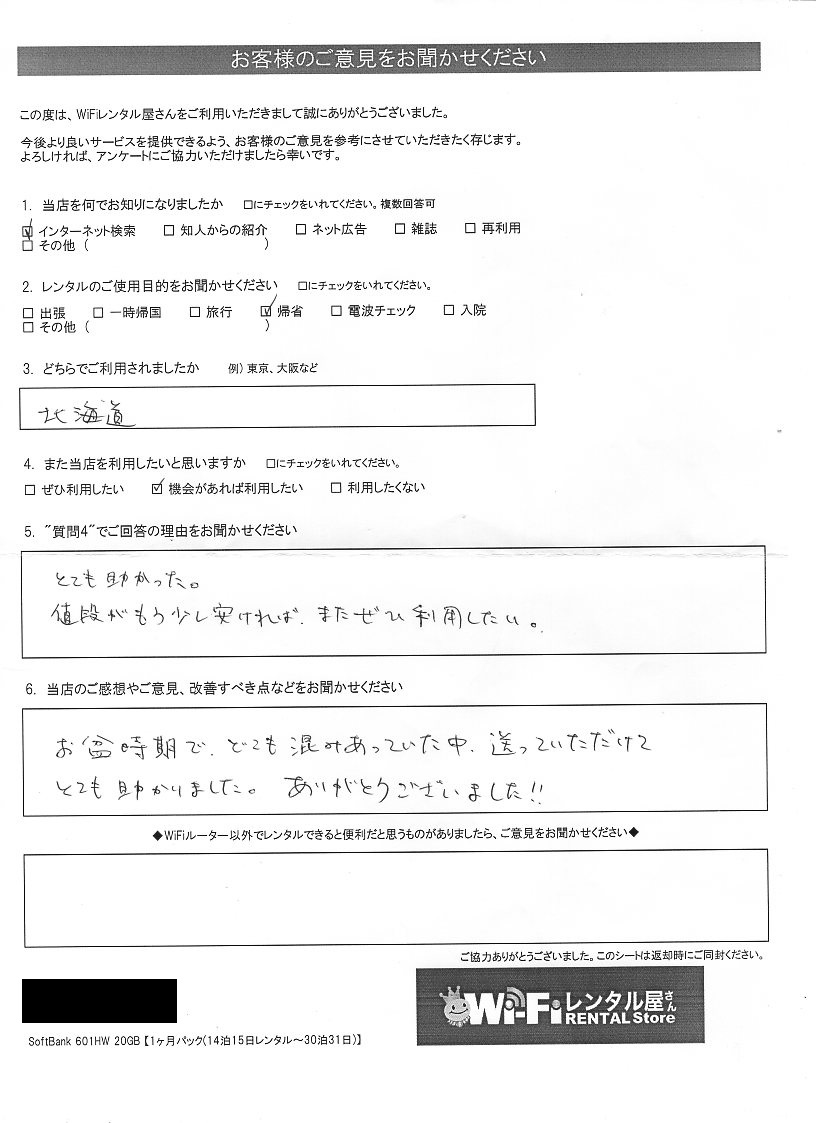 お客様のご意見をお聞かせください
この度は、WiFiレンタル屋さんをご利用いただきまして誠にありがとうございました。
今後より良いサービスを提供できるよう、お客様のご意見を参考にさせていただきたく存じます。
よろしければ、アンケートにご協力いただけましたら幸いです。
1. 当店を何でお知りになりましたか □にチェックをいれてください。複数回答可
☑ インターネット検索 □ 知人からの紹介 □ ネット広告 □ 雑誌 □ 再利用
□ その他 ( )
2. レンタルのご使用目的をお聞かせください □にチェックをいれてください。
□ 出張 □ 一時帰国 □ 旅行 ☑ 帰省 □ 電波チェック □ 入院
□ その他 ( )
3. どちらでご利用されましたか 例) 東京、大阪など
北海道
4. また当店を利用したいと思いますか □にチェックをいれてください。
□ ぜひ利用したい ☑ 機会があれば利用したい □ 利用したくない
5. "質問4"でご回答の理由をお聞かせください
とても助かった。
値段がもう少し安ければ、またぜひ利用したい。
6. 当店のご感想やご意見、改善すべき点などをお聞かせください
お盆時期で、とても混みあっていた中、送っていただけて
とても助かりました。ありがとうございました!!
◆WiFiルーター以外でレンタルできると便利だと思うものがありましたら、ご意見をお聞かせください◆
ご協力ありがとうございました。このシートは返却時にご同封ください。
Wi-Fiレンタル屋さん
RENTAL Store
SoftBank 601HW 20GB【1ヶ月パック(14泊15日レンタル～30泊31日)】